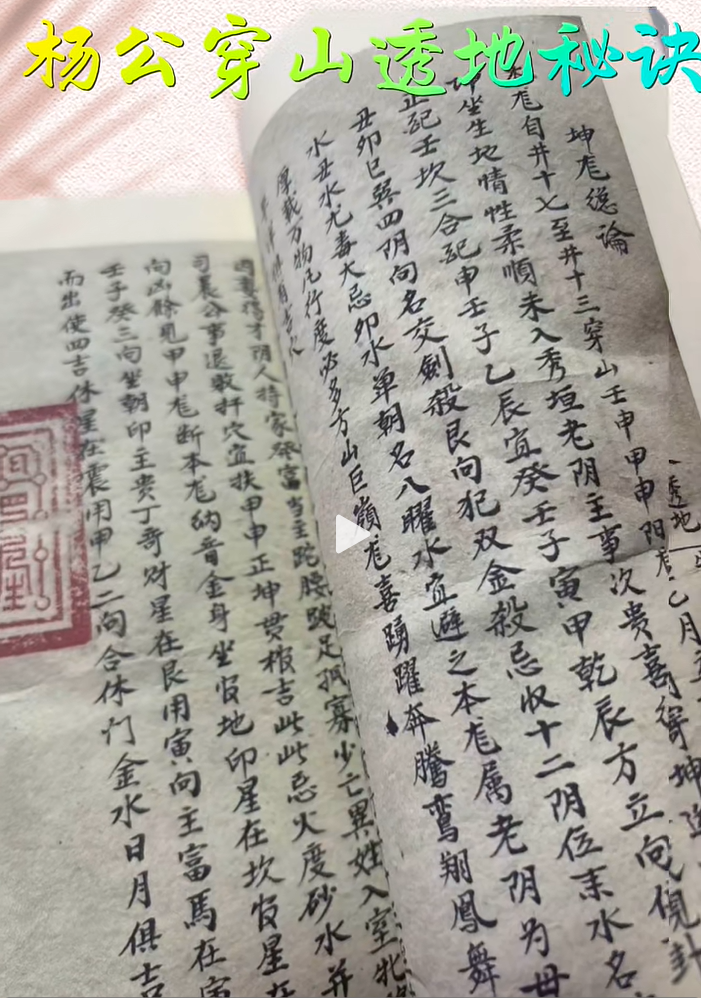 杨公穿山透地秘诀
坤尨总論
尨自井十七至井十三穿山壬申甲申阴尨乙月
透地
坐生地情性柔順未入秀垣老阴主事次贵喜寄坤
正記壬坎三合記申壬子乙辰宜癸壬子寅甲乾辰方立向俔卦
丑卯巳巽四阴向名交劍殺艮向犯双金殺忌收十二阴位耒水名
水丑水尤毒大忌卯水单朝名八曜水宜避之本尨属老阴为母
厚載万物凡行度必多方山巨嶺尨喜踴躍奔騰鸾翔鳳舞
因妻得才阴人持家發富当主跎腰跛足孤寡少亡異姓入室牝
司晨公事退敗扦穴宜扶甲申正坤贯棺吉此此忌火度砂水并
向凶餘見甲申尨断本尨納音金身坐官地印星在坎官星在
壬子癸三向坐朝印主贵丁奇财星在艮用寅向主富馬在寅
而出使四吉休星在震用甲乙二向合休门金水日月俱吉